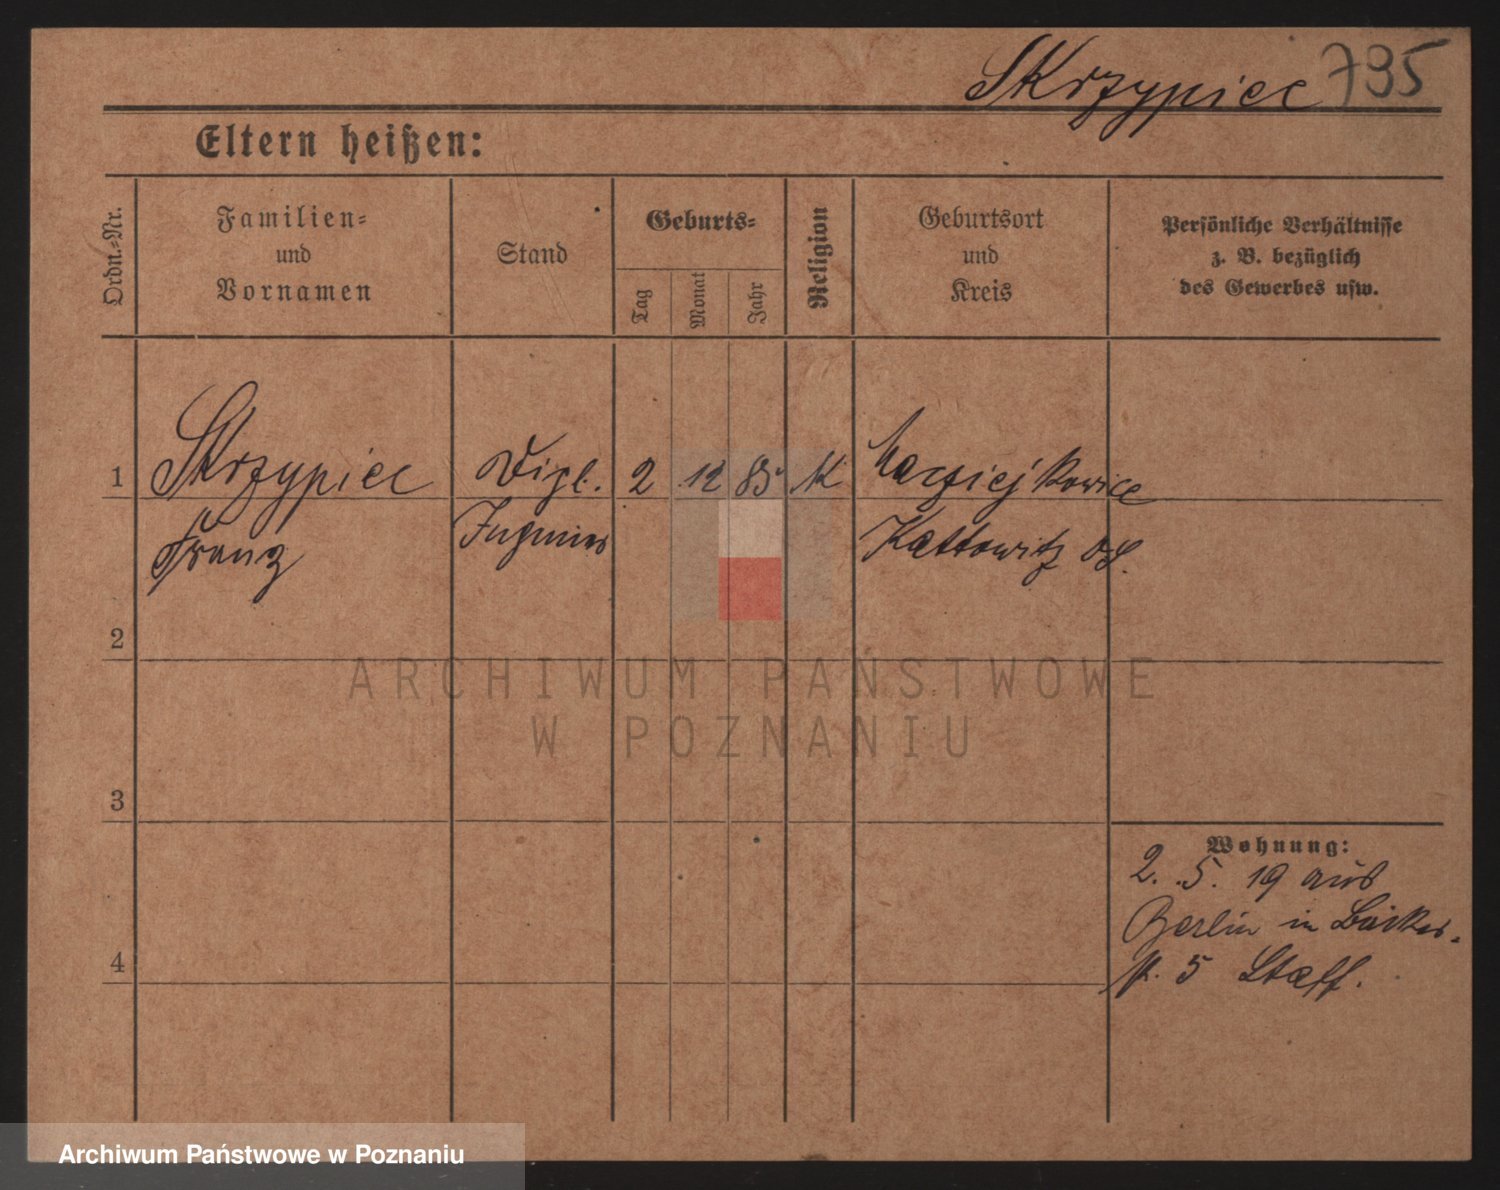 Skrzypiec 795
Eltern heißen:
Ordn.-Nr.
Familien-
und
Vornamen
Stand
Geburts-
Tag
Monat
Jahr
Religion
Geburtsort
und
Kreis
Persönliche Verhältnisse
z. B. bezüglich
des Gewerbes usw.
1 Skrzypiec Dipl. 2 12 85 K Maciejkowice
Franz Ingenieur Kattowitz OS.
2
3
4
Wohnung:
2. 5. 19 aus
Berlin in Bäcker-
5 Staff.
ARCHIWUM PAŃSTWOWE
W POZNANIU
Archiwum Państwowe w Poznaniu